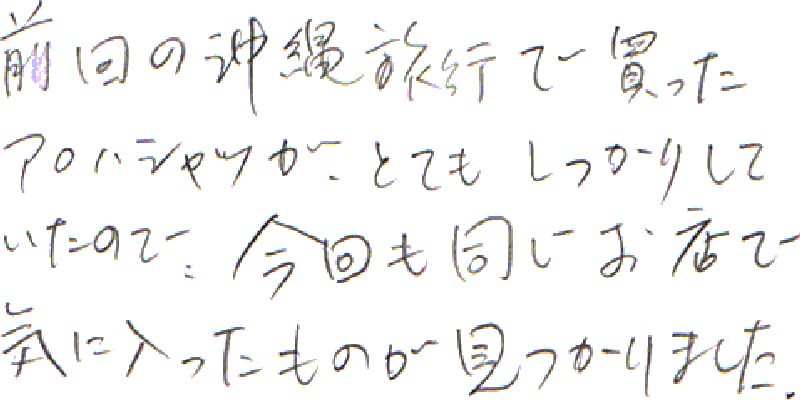 前回の沖縄旅行で買った
アロハシャツが、とてもしっかりして
いたので、今回も同じお店で
気に入ったものが見つかりました.